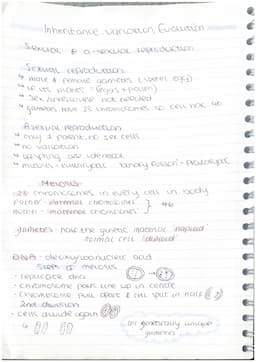 Inheritance, variation, Evolution
Sexual & a-sexual reproduction
Sexual reproduction
↳ male & female gametes (sperm & egg)
↳ if its plants - (eggs + pollen)
↳ Sex / intercourse not needed
↳ gametes have 23 chromosomes so cell has 46
Asexual reproduction
↳ only 1 parent, no sex cells
↳ no variation
↳ offspring are identical
↳ mitosis - eukaryotic binary fission - prokaryotic
Meiosis
chromosomes in every cell in body
paternal chromosomes
maternal chromosomes } 46
gametes - half the genetic material 'haploid'
normal cell 'diploid'
DNA - deoxyribonucleic acid
Steps of meiosis
- replicate DNA
- chromosome pairs line up in centre
- chromosome pull apart & cell split in half
2nd division
- cells divide again
all genetically unique
gametes